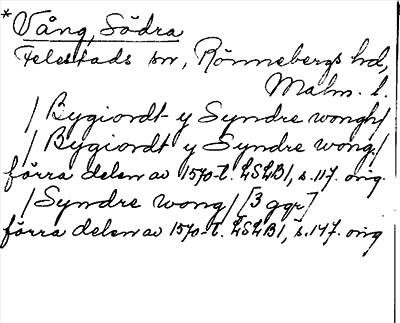 * Vång, Södra
Felestads sn, Rönnebergs hd,
Malm. l.
/Bygiordt y Syndre wongh/
/Bygiordt y Syndre wong/
förra delen av 1570-t. LSLB1, s.117. orig.
/Syndre wong/ [3 ggr]
förra delen av 1570-t. LSLB1, s.147. orig